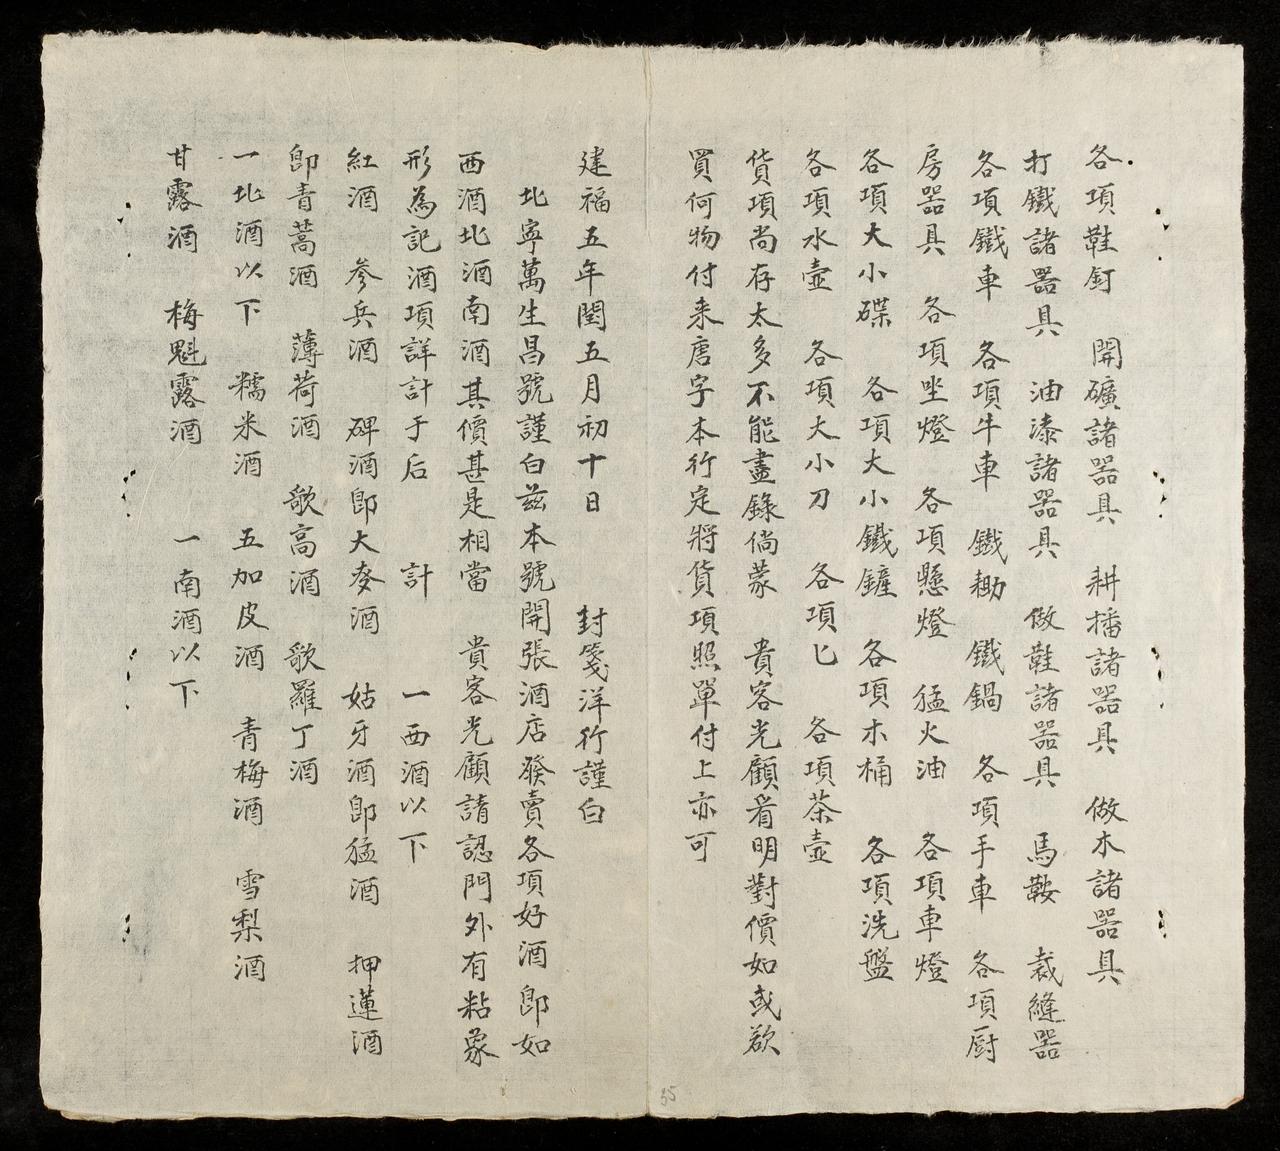 各項鞋釘　開礦諸器具　耕播諸器具　做木諸器具
打鐵諸器具　油漆諸器具　做鞋諸器具　馬鞍　裁縫器
各項鐵車　各項牛車　鐵耡　鐵鍋　各項手車　各項厨
房器具　各項坐燈　各項懸燈　猛火油　各項車燈
各項大小碟　各項大小鐵鏟　各項木桶　各項洗盤
各項水壺　各項大小刀　各項匕　各項茶壺
貨項尚存太多不能盡錄倘蒙　貴客光顧看明對價如或欲
買何物付来唐字本行定將貨項照單付上亦可
建福五年閏五月初十日　封箋洋行謹白
北寧萬生昌號謹白茲本號開張酒店發賣各項好酒卽如
西酒北酒南酒其價甚是相當　貴客光顧請認門外有粘象
形為記酒項詳計于后　計　一西酒以下
紅酒　參兵酒　碑酒卽大麥酒　姑牙酒卽猛酒　押蓮酒
卽青蒿酒　薄荷酒　歌高酒　歌羅丁酒
一北酒以下　糯米酒　五加皮酒　青梅酒　雪梨酒
甘露酒　梅魁露酒　一南酒以下
35